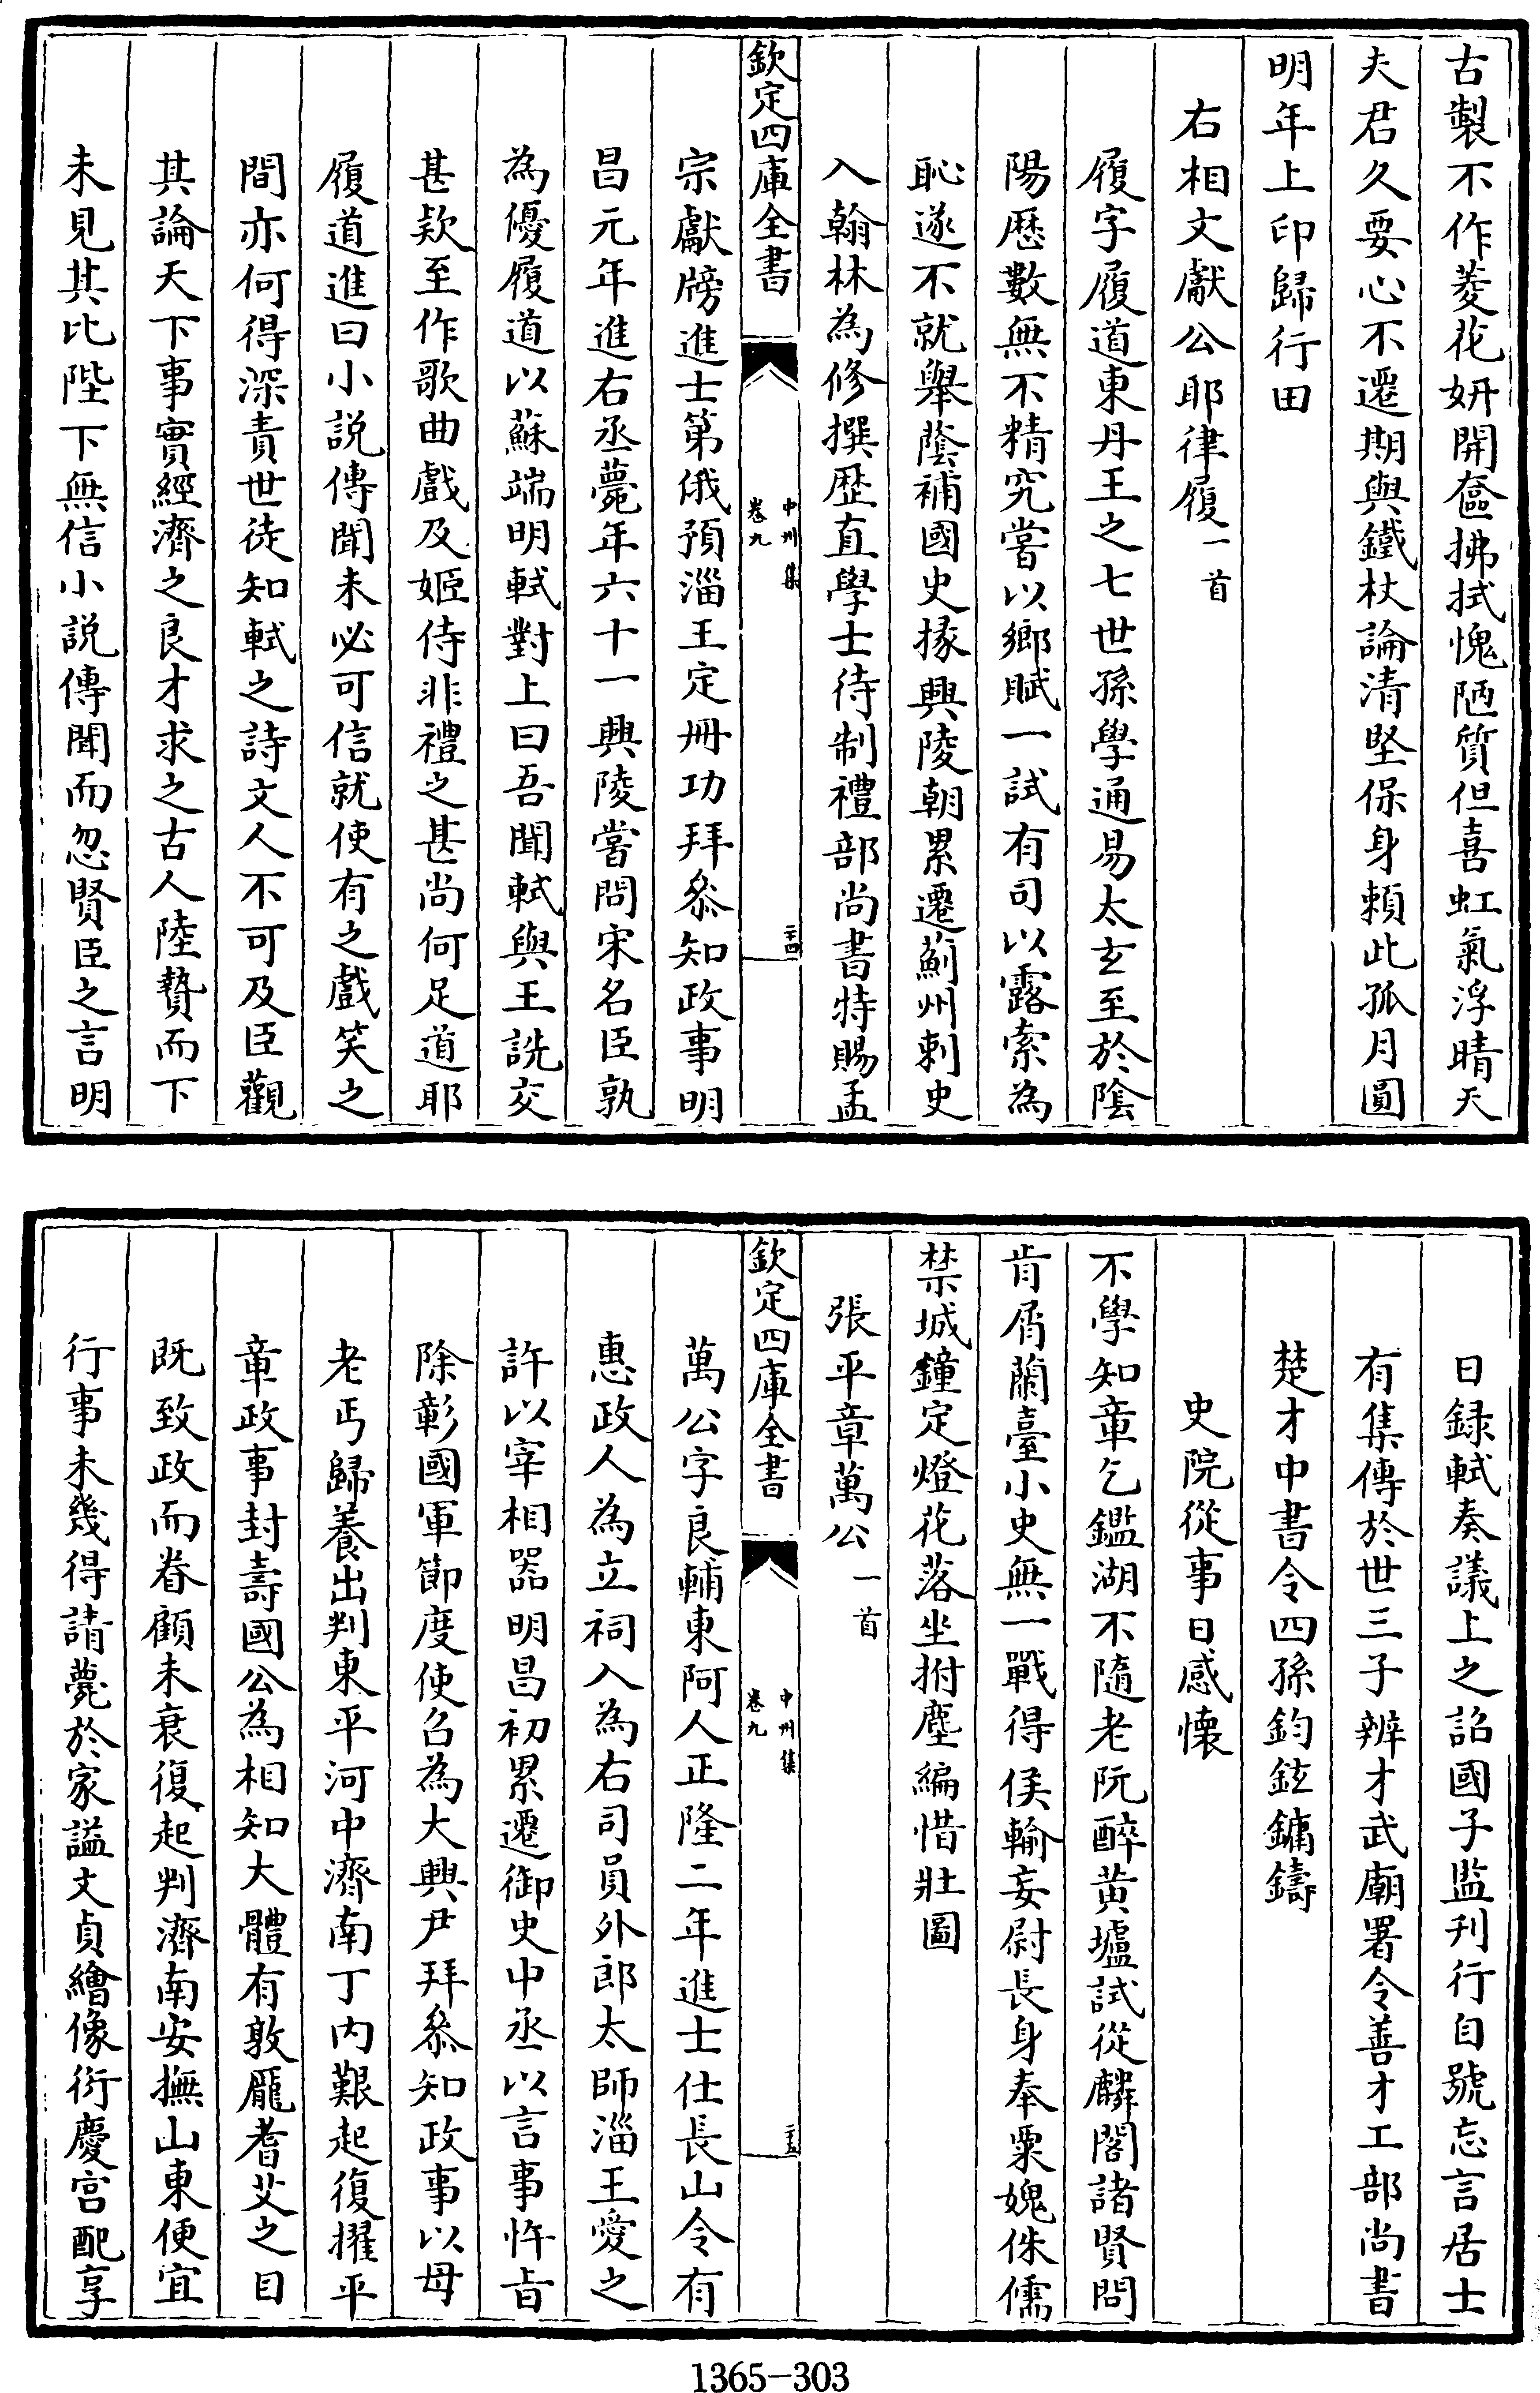 古製不作菱花妍開奩拂拭愧陋質但喜虹氣浮晴天
夫君久要心不遷期與鐵杖論清堅保身賴此孤月圓
明年上印歸行田
右相文獻公耶律履一首
履字履道東丹王之七世孫學通易太玄至於陰
陽歴數無不精究嘗以鄉賦一試有司以露索為
恥遂不就舉蔭補國史掾興陵朝累遷薊州刺史
入翰林為修撰歴直學士待制禮部尚書特賜孟
欽定四庫全書
中州集
卷九
二十四
宗獻牓進士第俄預淄王定冊功拜叅知政事明
昌元年進右丞薨年六十一興陵嘗問宋名臣孰
為優履道以蘇端明軾對上曰吾聞軾與王詵交
甚欵至作歌曲戲及姬侍非禮之甚尚何足道耶
履道進曰小説傳聞未必可信就使有之戲笑之
間亦何得深責世徒知軾之詩文人不可及臣觀
其論天下事實經濟之良才求之古人陸贄而下
未見其比陛下無信小説傳聞而忽賢臣之言明
日録軾奏議上之詔國子監刋行自號忘言居士
有集傳於世三子辨才武廟署令善才工部尚書
楚才中書令四孫鈞鉉鏞鑄
史院從事日感懷
不學知章乞鑑湖不隨老阮醉黄壚試從麟閣諸賢問
肯屑蘭臺小史無一戰得侯輸妄尉長身奉粟媿侏儒
禁城鐘定燈花落坐拊塵編惜壯圖
張平章萬公一首
欽定四庫全書
中州集
卷九
二十五
萬公字良輔東阿人正隆二年進士仕長山令有
惠政人為立祠入為右司員外郎太師淄王愛之
許以宰相器明昌初累遷御史中丞以言事忤旨
除彰國軍節度使召為大興尹拜叅知政事以母
老丐歸養出判東平河中濟南丁内艱起復擢平
章政事封壽國公為相知大體有敦龐耆艾之目
既致政而眷顧未衰復起判濟南安撫山東便宜
行事未幾得請薨於家謚文貞繪像衍慶宮配享
1365-303